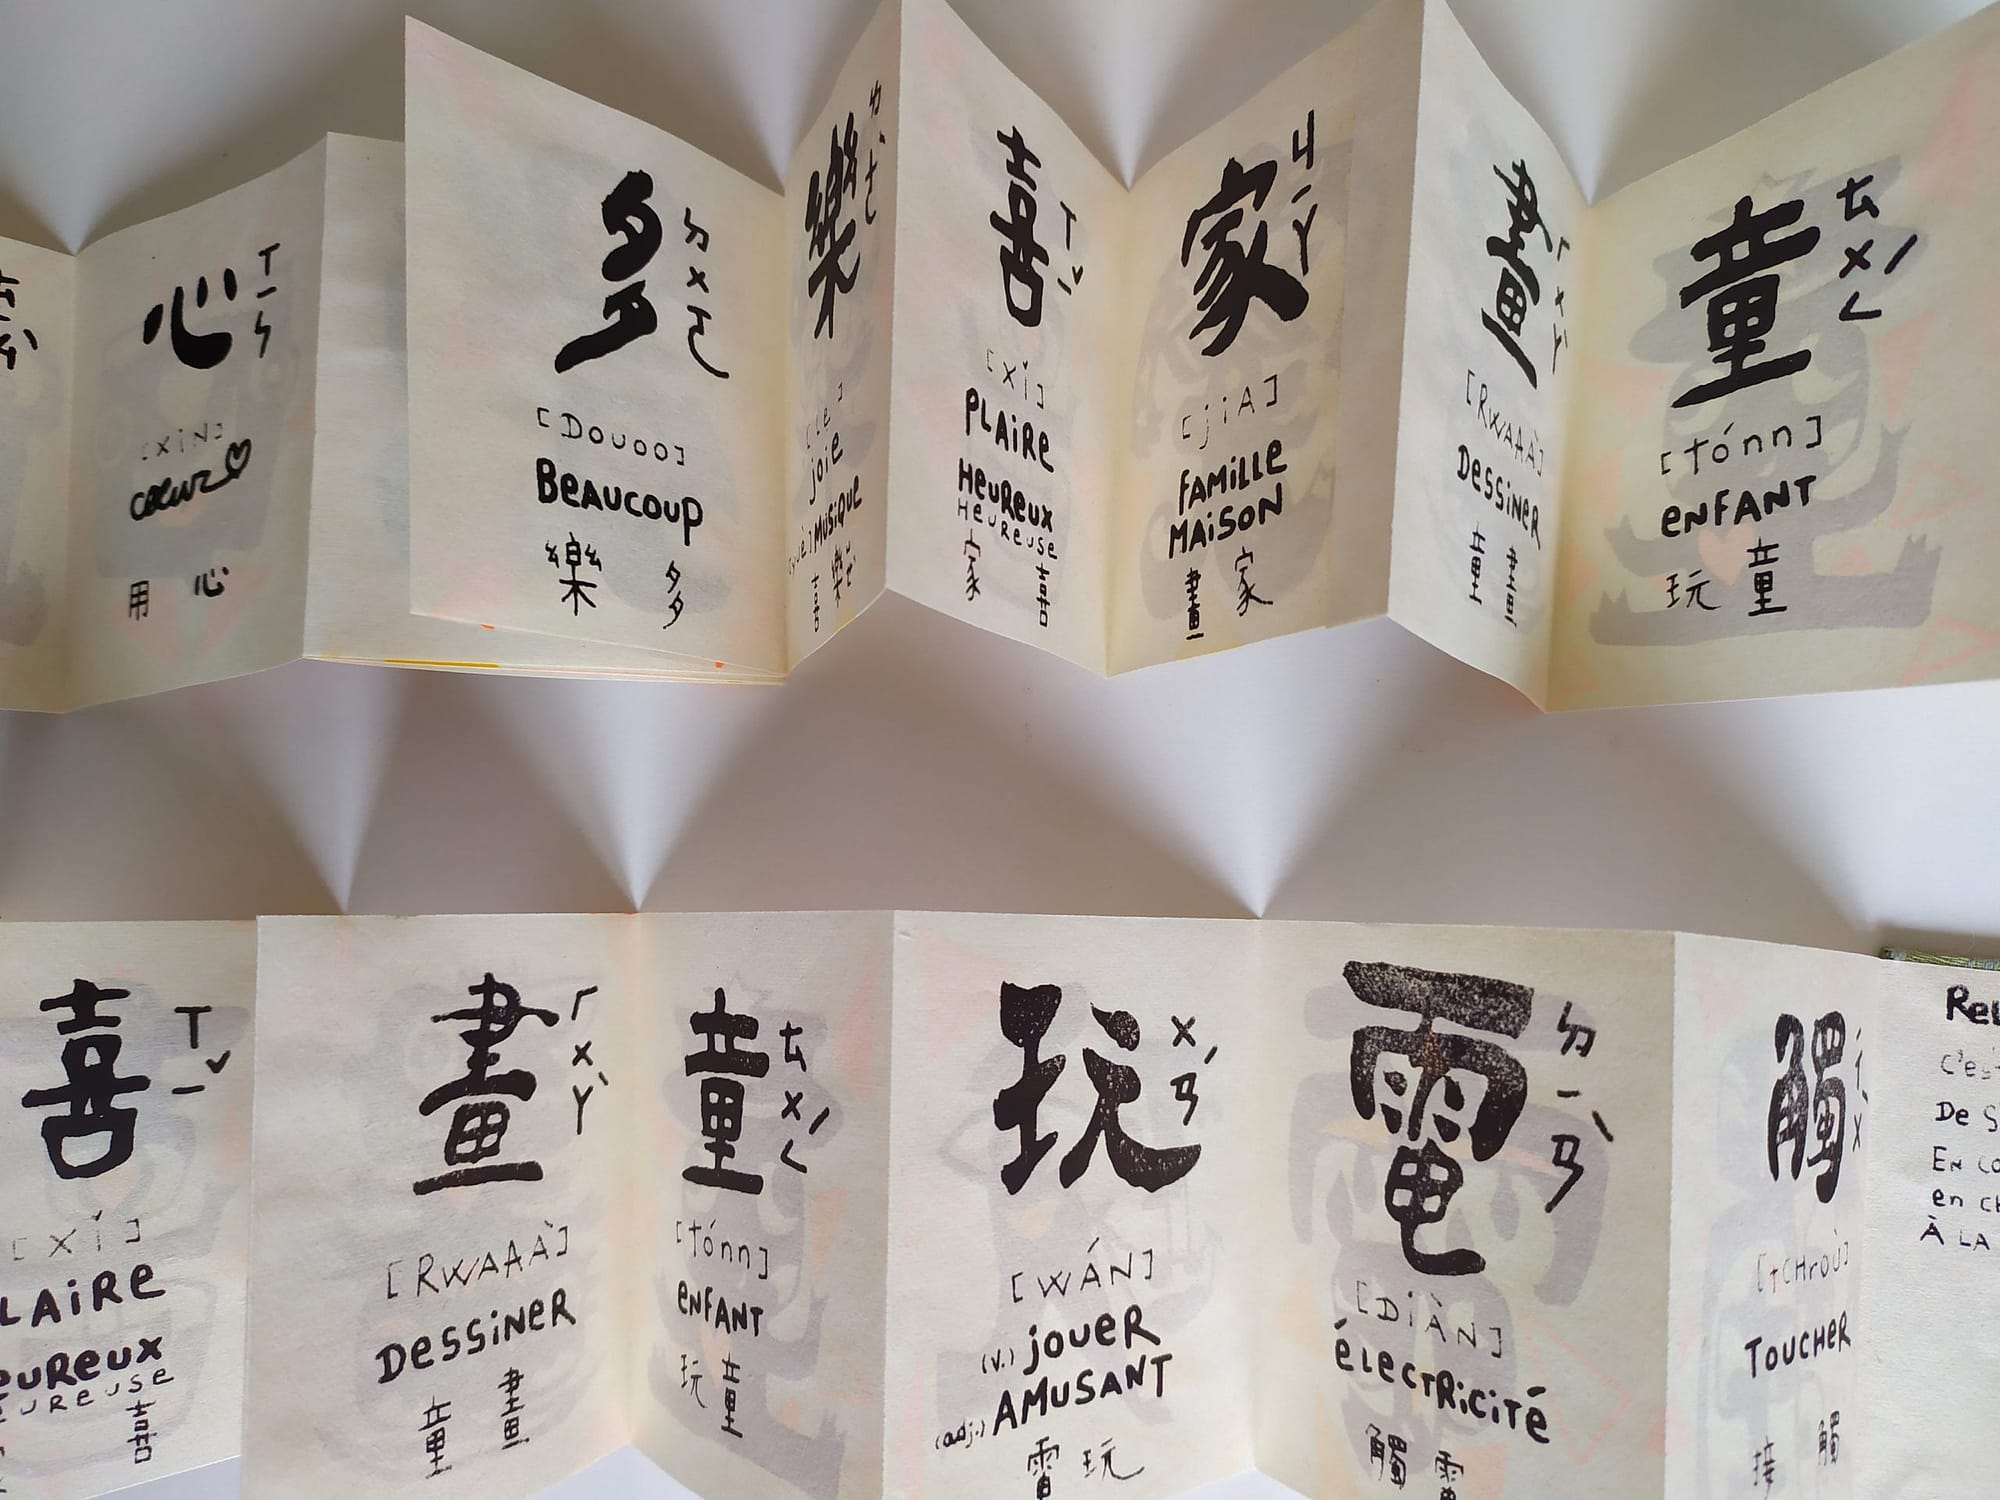 心
ㄒㄧㄣ
[XiN]
cœur
用 心
多
ㄉㄨㄛ
[Douoo]
BEAUCOUP
樂 多
樂
ㄌㄜˋ
[Le]
joie
MUSIQUE
喜 樂
喜
ㄒㄧˇ
[xǐ]
PLAIRE
HEUREUX
HEUREUSE
家 喜
家
ㄐㄧㄚ
[jiA]
FAMILLE
MAISON
畫 家
畫
ㄏㄨㄚˋ
[RWAAÀ]
DESSINER
童 畫
童
ㄊㄨㄥˊ
[tónn]
ENFANT
玩 童
喜
ㄒㄧˇ
[xǐ]
LAIRE
EUREUX
UREUSE
喜
畫
ㄏㄨㄚˋ
[RWAAÀ]
DESSINER
童 畫
童
ㄊㄨㄥˊ
[tónn]
ENFANT
玩 童
玩
ㄨㄢˊ
[WÁN]
(v.) jouer
(adj.) AMUSANT
電 玩
電
ㄉㄧㄢˋ
[DiÀN]
éLECTRiCiTé
觸 電
觸
[tCHroù]
TOUCHER
接 觸
REL
C'es
De S
EN CO
en CH
À LA